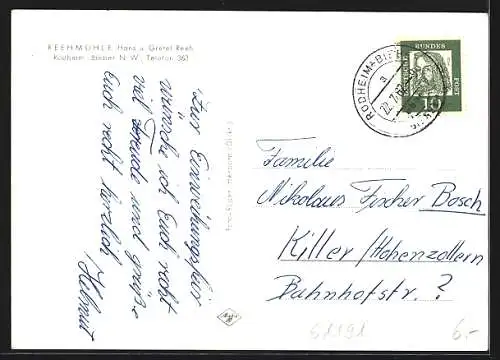 REEHMÜHLE Hans u. Gretel Reeh
Rodheim-Bieber N.W. Telefon 363
Zur Einweihungsfeier
wünsche ich Euch recht
viel Freude und grüße
Euch recht herzlich
Helmut
RODHEIM-BIEBER
a
22.7.62
DEUTSCHE
BUNDES
POST
10
Familie
Nikolaus Fischer Bosch
Killer/Hohenzollern
Bahnhofstr. ?
Agfa
68191
6,-